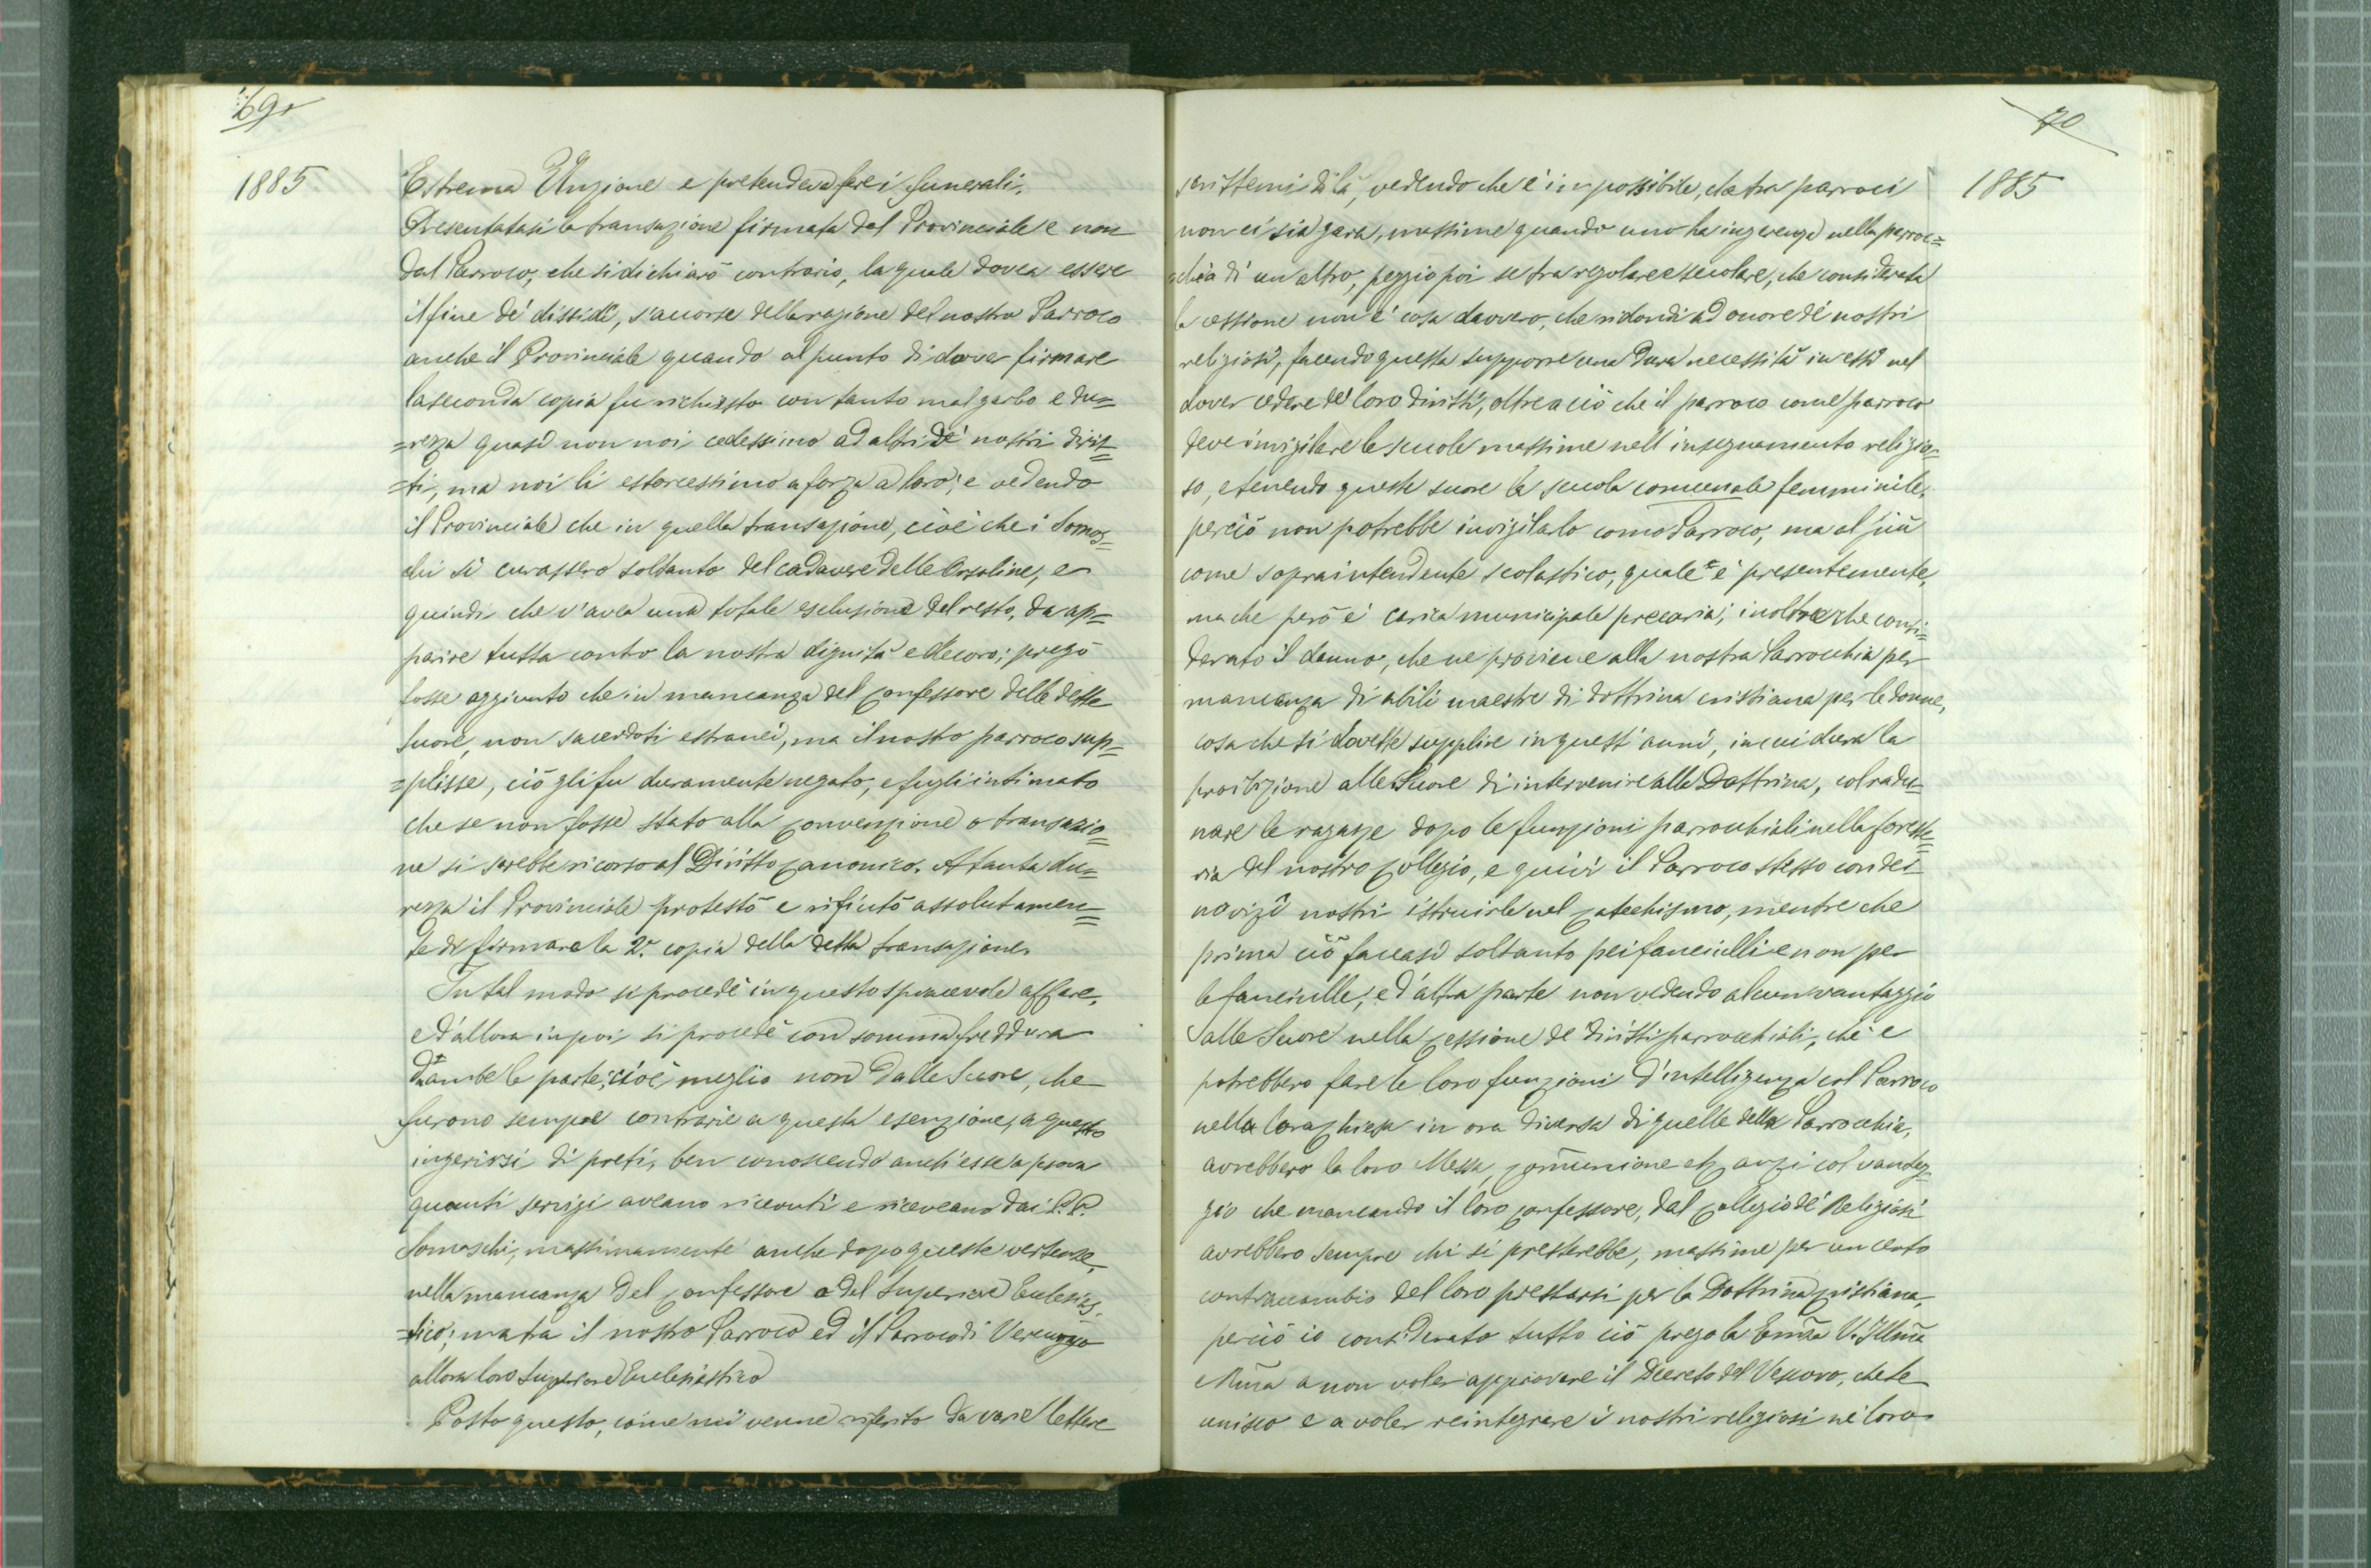 69
1885
Estrema Unzione e pretendeva fare i funerali.
Presentatasi la transazione firmata dal Provinciale e non
dal Parroco, che si dichiarò contrario, la quale dovea essere
il fine de' dissidî, s'accorse della ragione del nostro Parroco
anche il Provinciale quando al punto di dover firmare
la seconda copia fu richiesto con tanto mal garbo e du=
=rezza quasi non noi cedessimo ad altri de' nostri dirit=
=ti, ma noi li estorcessimo a forza a loro; e vedendo
il Provinciale che in quella transazione, cioè che i Somas=
chi si curassero soltanto del cadavere delle Orsoline, e
quindi che v'avea una totale esclusione del resto, da ap=
parire tutta contro la nostra dignità e decoro; pregò
fosse aggiunto che in mancanza del confessore delle dette
Suore, non sacerdoti estranei, ma il nostro parroco sup=
=plisse, ciò gli fu duramente negato, e fugli intimato
che se non fosse stato alla convenzione o transazio=
ne si sarebbe ricorso al Diritto canonico. A tanta du=
rezza il Provinciale protestò e rifiutò assolutamen=
te di firmare la 2.ª copia della detta transazione.
In tal modo si procedè in questo spiacevole affare,
e d'allora in poi si procedè con somma freddura
d'ambe le parte; cioè meglio non dalle Suore, che
furono sempre contrarie a questa esenzione, a questo
ingerirsi di preti, ben conoscendo anch'esse a prova
quanti servizi aveano ricevuti e riceveano dai P.P.
Somaschi, massimamente anche dopo queste vertenze,
nella mancanza del confessore o del Superiore Eccle­sias=
=tico; mata il nostro Parroco ed il Parroco di Vercurago
allora loro Superiore Ecclesiastico
Posto questo, come mi venne riferito da varie lettere
70
1885
scrittemi di là, vedendo che è impossibile, che tra parroci
non ci sia gara, massime quando uno ha ingerenza nella parroc=
=chia di un altro, peggio poi se tra regolare e secolare, che considerata
la cessione non è cosa davvero, che ridondi ad onore de' nostri
religiosi, facendo questa supporre una dura necessità in essi nel
dover cedere de' loro diritti, oltre a ciò che il parroco come parroco
deve invigilare le scuole massime nell'insegnamento religio=
so, e tenendo queste suore la scuola comunale femminile,
perciò non potrebbe invigilarlo come Parroco, ma al più
come sopraintendente scolastico, quale è presentemente,
ma che però è carica municipale precaria; inoltre che consi=
derato il danno, che ne proviene alla nostra Parrocchia per
mancanza di abili maestre di dottrina cristiana per le donne,
cosa che si dovette supplire in quest'anni, in cui dura la
proibizione alle Suore di intervenire alla Dottrina, col radu=
nare le ragazze dopo le funzioni parrocchiali nella foreste=
ria del nostro collegio, e quivi il Parroco stesso con dei
novizi nostri istruirle nel catechismo, mentre che
prima ciò faceasi soltanto pei fanciulli e non per
le fanciulle; e d'altra parte non vedendo alcun vantaggio
alle Suore nella cessione de' diritti parrocchiali, chè e
potrebbero fare le loro funzioni d'intelligenza col Parroco
nella loro chiesa in ora diversa di quelle della Parrocchia,
avrebbero la loro Messa, comunione etc. anzi col vantag=
gio che mancando il loro confessore, dal collegio de' Religiosi
avrebbero sempre chi si presterebbe, massime per un certo
contraccambio del loro prestarsi per la Dottrina cristiana,
perciò io considerato tutto ciò prego la Emza V. Illma
e Rma a non voler approvare il Decreto del Vescovo, che le
unisco e a voler reintegrare i nostri religiosi ne' loro